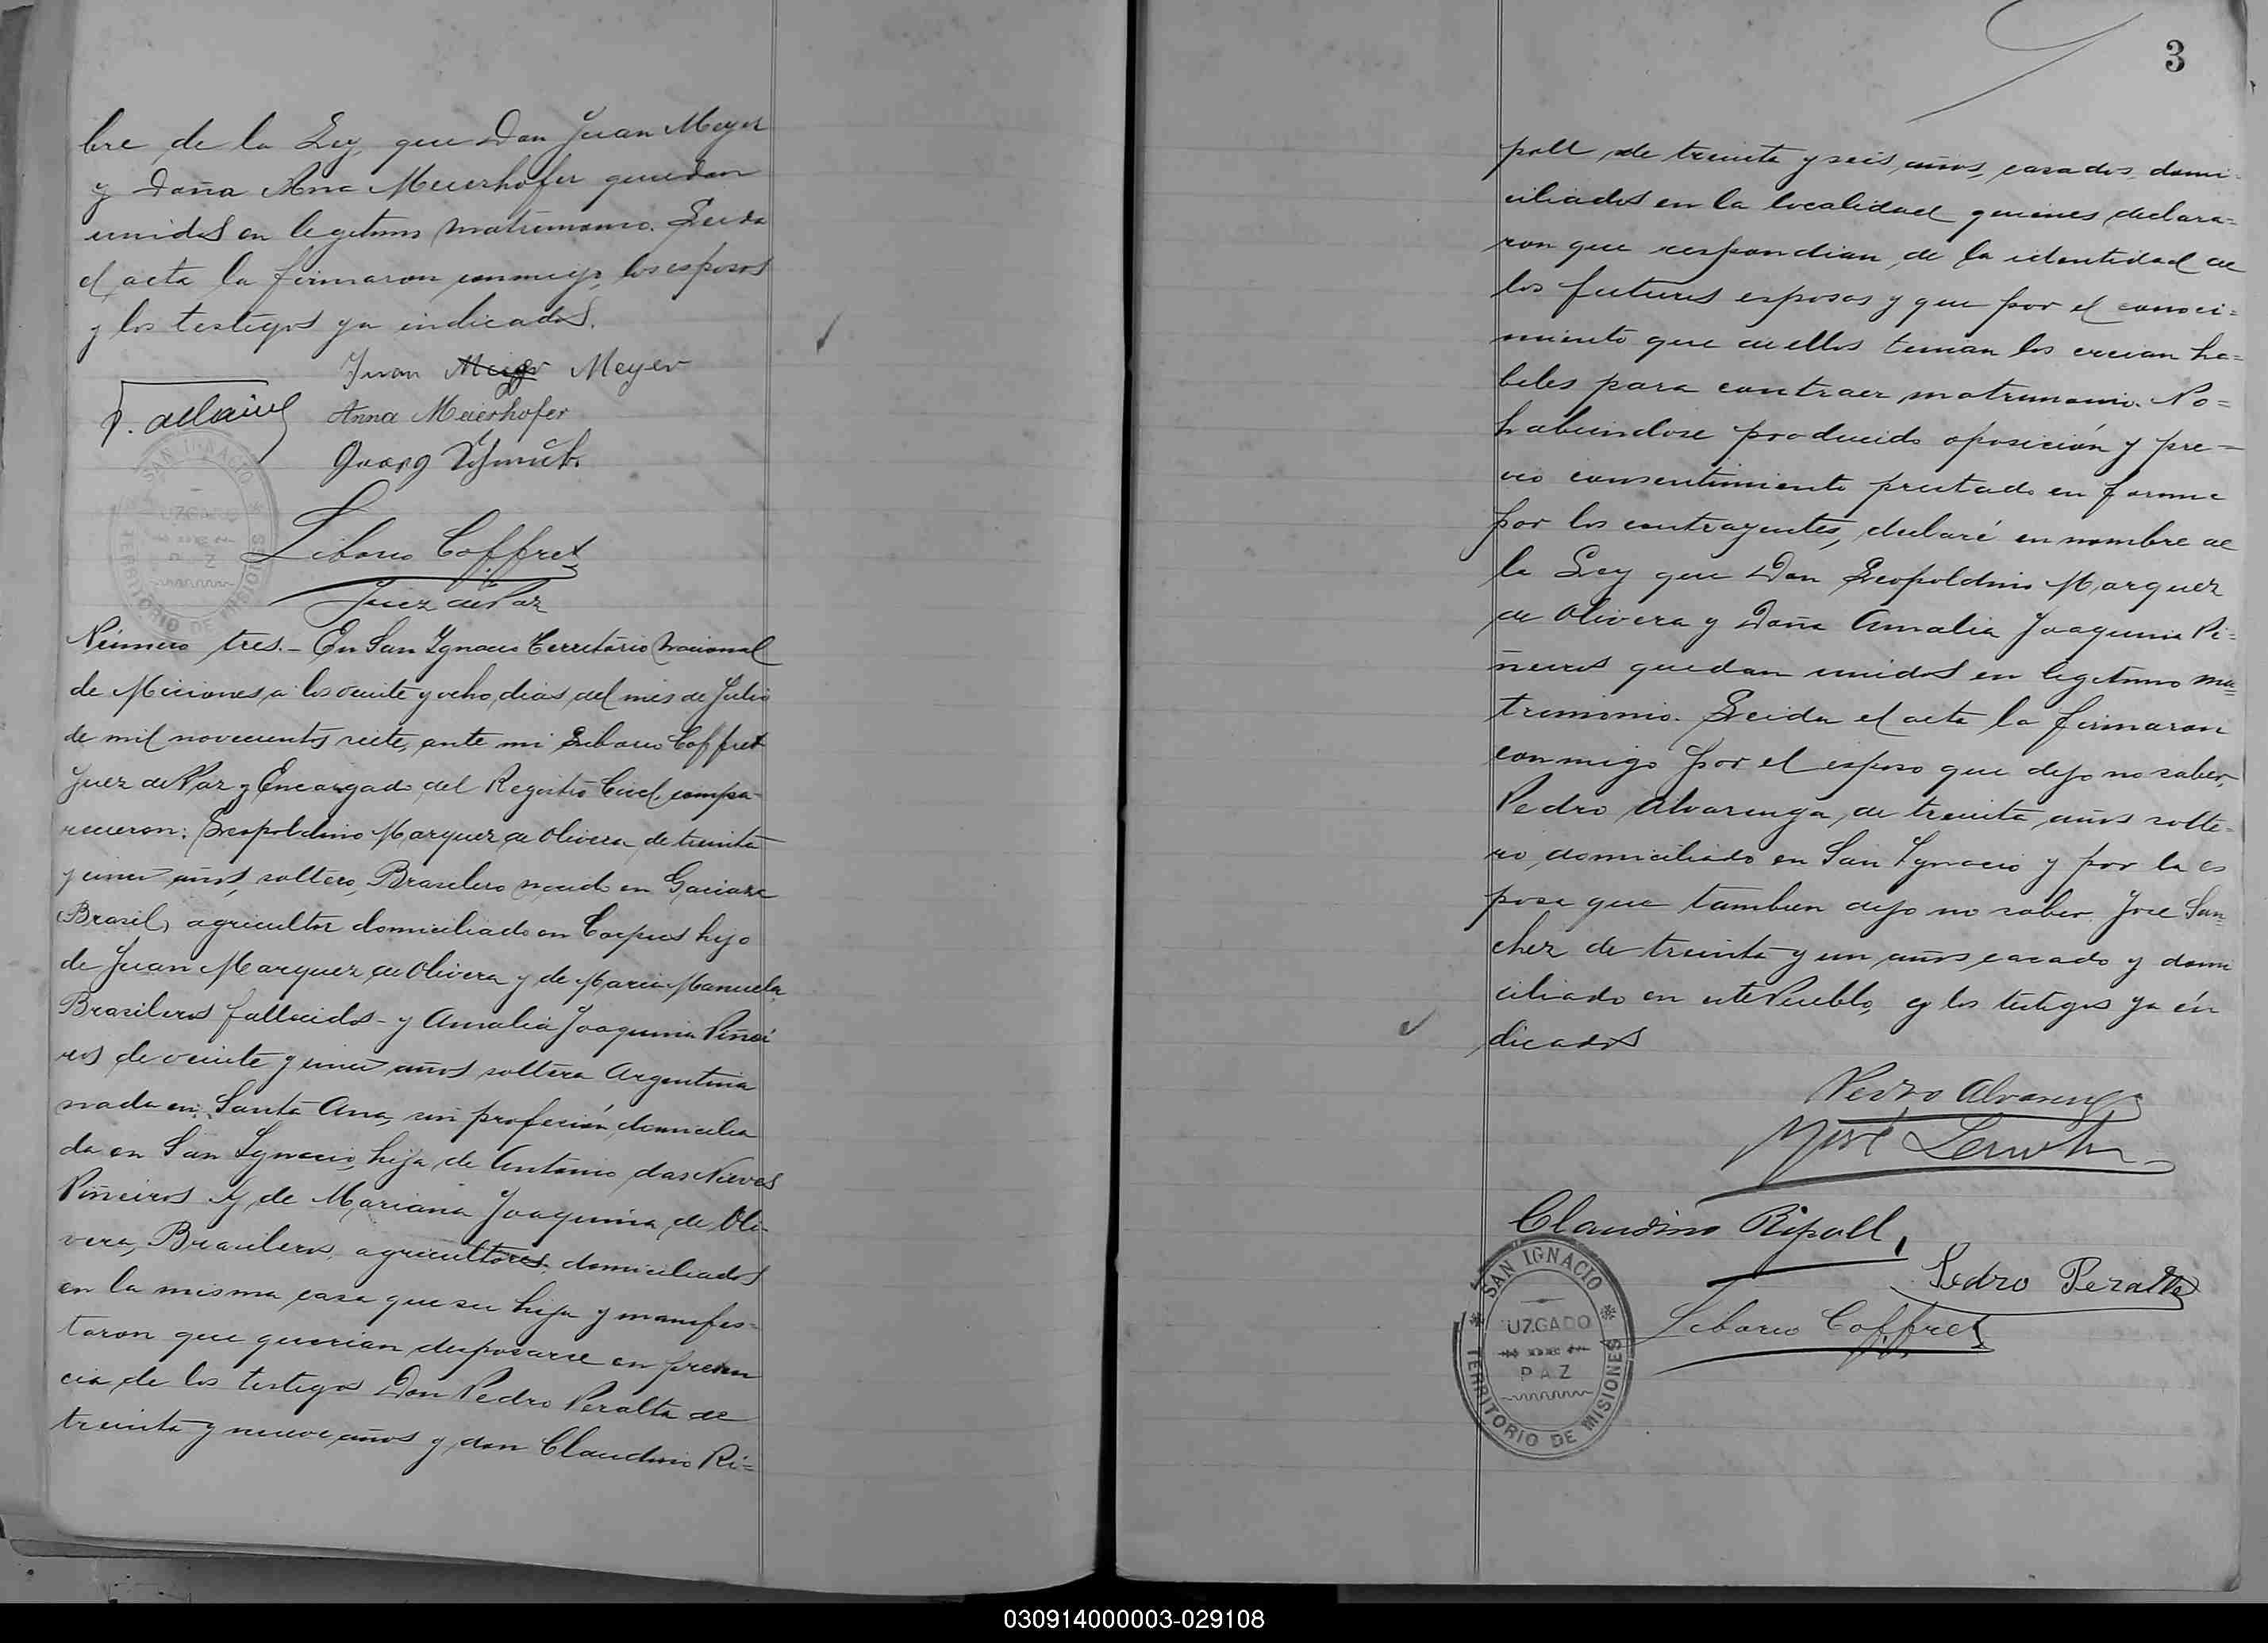 bre de la Ley, que Don Juan Meyer
y Doña Ana Meierhofer quedan
unidos en legitimo matrimonio. Leida
el acta la firmaron conmigo, los esposos
y los testigos ya indicados.
Juan Meyer Meyer
Anna Meierhofer
Georg
SAN IGNACIO
UZGADO
PAZ
TERRITORIO DE MISIONES
Liborio Coffret
Juez de Paz
Número tres.- En San Ygnacio Territorio Nacional
de Miciones, a los veinte y ocho dias del mes de Julio
de mil novecientos siete, ante mi Liborio Coffret
Juez de Paz y Encargado del Registro Civil, compa-
recieron: Leopoldino Marquez de Olivera de treinta
y cinco años, soltero, Brasilero nacido en
(Brasil) agricultor domiciliado en Corpus hijo
de Juan Marquez de Olivera y de Maria Manuela,
Brasileros fallecidos- y Amalia Joaquina Piñei
ros de veinte y cinco años soltera Argentina
nada en Santa Ana, sin profeción, domicilia
da en San Ygnacio, hija de Antonio das Nieves
Piñeiros y de Mariana Joaquina de Oli-
vera, Brasileros, agricultores, domiciliados
en la misma casa que su hija y manifes-
taron que querian desposarse en presen
cia de los testigos Don Pedro Peralta de
treinta y nueve años y don Claudino Ri=
3
poll de treinta y seis años, casados, domi-
ciliados en la localidad quienes declara=
ron que respondian de la identidad de
los futuros esposos y que por el conoci=
miento que de ellos tenian los creian ha=
biles para contraer matrimonio. No=
habiendose producido oposición y pre=
vio consentimiento prestado en forma
por los contrayentes, declaré en nombre de
la Ley que Don Leopoldino Marquez
de Olivera y Doña Amalia Joaquina Pi=
ñeiros quedan unidos en legitimo ma=
trimonio. Leida el acta la firmaron
conmigo por el esposo que dijo no saber,
Pedro Alvarenga, de treinta años solte-
ro, domiciliado en San Ygnacio y por la es
posa que tambien dijo no saber José San
chez de treinta y un años casado y domi
ciliado en este Pueblo, y los testigos ya in
dicados
Pedro Alvarenga
José
Claudino Ripoll,
Pedro Peralta
Liborio Coffret
SAN IGNACIO
UZGADO
DE
PAZ
TERRITORIO DE MISIONES
030914000003-029108